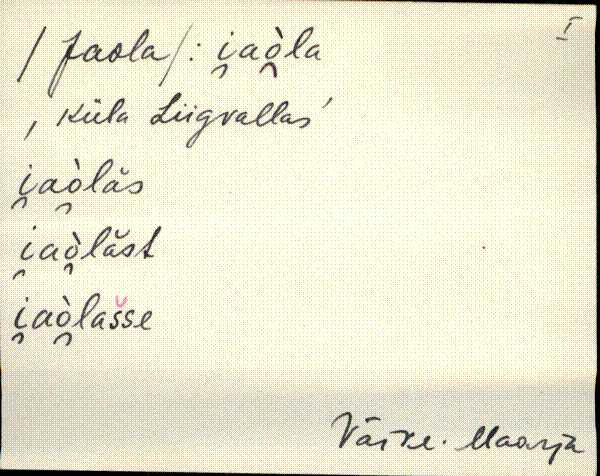 I
/Jaola/: i̯aò̯la
, küla Liigvallas'
i̯aò̯lăs
i̯aò̯lăst
i̯aò̯las̆se
Väike-Maarja